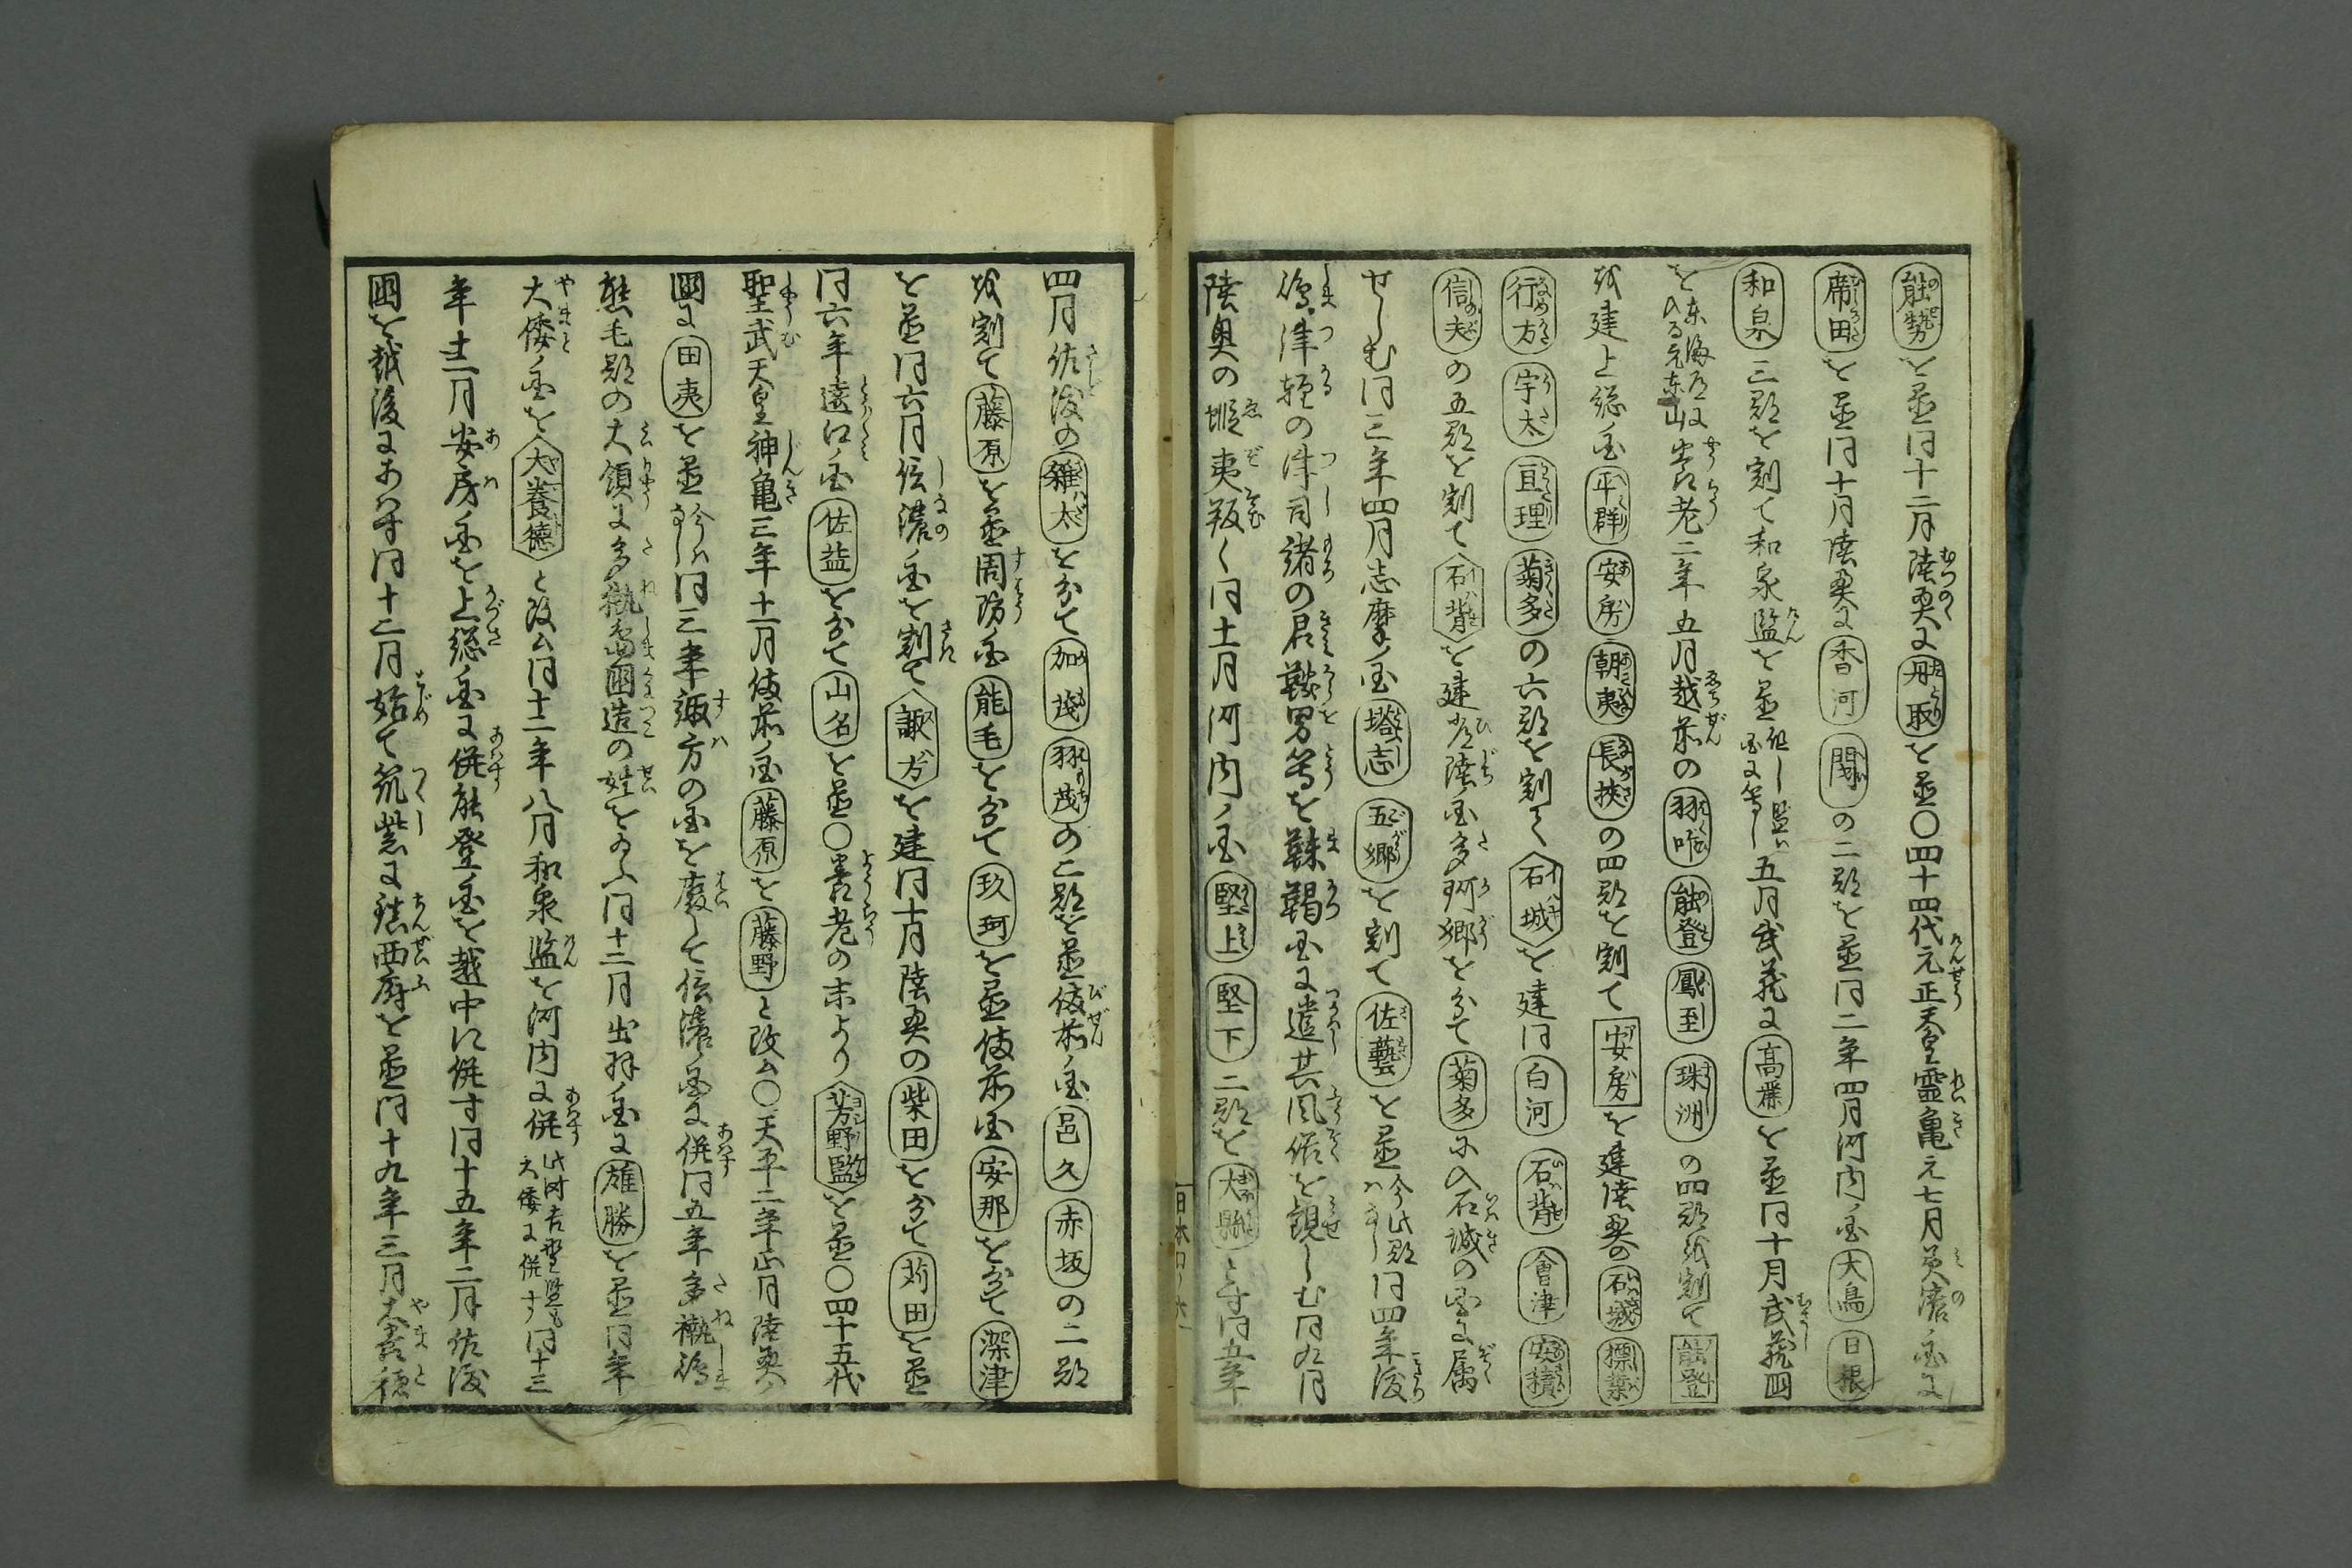 能勢を置同十二月陸奥に丹取を置〇四十四代元正天皇霊亀元七月美濃ノ国に
席田を置同十月陸奥に香河閇の二郡を置同二年四月河内ノ国大鳥日根
和泉三郡を割て和泉監を置但し監ハ国に等し五月武蔵に高麗を置同十月武蔵国
を東海道に入る元東山養老二年五月越前の羽咋能登鳳至珠洲の四郡を割て能登
を建上総ノ国平群安房朝夷長狭の四郡を割て安房を建陸奥の石城標葉
行方宇太亘理菊多の六郡を割て石城を建同白河石背會津安積
信夫の五郡を割て石背を建常陸国多珂郷を分て菊多に入石城の国に属
せしむ同三年四月志摩ノ国塔志五郷を割て佐藝を置今此郡ハなし同四年渡
嶋津軽の津司諸の君鞍男等を靺鞨国に遣其風俗を観しむ同九月
陸奥の蝦夷叛く同十一月河内ノ国堅上堅下二郡を大縣とす同五年
四月佐渡の雑太を分て加茂羽茂の二郡を置備前ノ国邑久赤坂の二郡
を割て藤原を置周防ノ国能毛を分て玖珂を置備前国安那を分て深津
を置同六月信濃ノ国を割て諏方を建同十月陸奥の柴田を分て苅田を置
同六年遠江ノ国佐益を分て山名を置〇養老の末より芳野監を置〇四十五代
聖武天皇神亀三年十一月備前ノ国藤原を藤野と改ム〇天平二年正月陸奥ノ
国に田夷を置今ハなし同三年諏方の国を廃して信濃ノ国に併同五年多褹嶋
熊毛郡の大領に多褹嶋国造の姓を給ふ同十二月出羽ノ国に雄勝を置同年
大倭ノ国を大養徳と改ム同十二年八月和泉監を河内に併此時吉野監も大倭に併す同十三
年十二月安房ノ国を上総ノ国に併能登ノ国を越中に併す同十五年二月佐渡
国を越後にあはす同十二月始て筑紫に鎮西府を置同十九年三月大養徳
日本